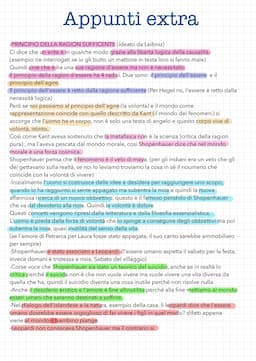 Appunti extra
-PRINCIPIO DELLA RAGION SUFFICIENTE (ideato da Leibniz)
Ci dice che un ente è in qualche modo grazie alla libertà logica della causalità
(esempio tre interrogat se io gli butto un mattone in testa loro si fanno male)
Quindi ciò che è ha una sua ragione di essere ma non è necessitato.
Il principio della ragion d'essere ha 4 radici. Due sono: il principio dell'essere e il
principio dell'agire.
Il principio dell'essere è retto dalla ragione sufficiente (Per Hegel no, l'essere è retto dalla
necessità logica)
Però se noi passiamo al principio dell'agire (la volontà) e il mondo come
rappresentazione coincide con quello descritto da Kant (il mondo dei fenomeni) si
accorge che l'uomo ha in corpo, non è solo una testa di angelo e questo corpo vive di
volontà, istinto.
Così come Kant aveva sostenuto che la metafisica non è la scienza (critica della ragion
pura), ma l'aveva pescata dal mondo morale, così Schopenhauer dice che nel mondo
morale è una forza cosmica.
Schopenhauer pensa che il fenomeno è il velo di maya. (per gli indiani era un velo che gli
dei gettavano sulla realtà, se noi lo leviamo troviamo la cosa in sé il noumeno che
coincide con la volontà di vivere)
-Inizialmente l'uomo si costruisce delle idee e desidera per raggiungere uno scopo,
quando lo ha raggiunto si sente appagato ma subentra la noia e quindi la
affannosa ricerca di un nuovo obbiettivo, questo è il famoso pendolo di Schopenhauer
che va dal desiderio alla noia. Quindi la volontà è dolore.
Questi concetti vengono ripresi dalla letteratura e dalla filosofia esistenzialistica.
L'uomo è preda della forza di volontà che lo spinge a conseguire degli obbiettivi ma poi
subentra la noia, quasi inutilità del senso della vita.
(se l'amore di Petrarca per Laura fosse stato appagato, il suo canto sarebbe ammobiliato
per sempre)
Schopenhauer è stato associato a Leopardi (l'essere umano aspetta il sabato per la festa,
invece domani è tristezza e noia, Sabato del villaggio)
-Corse voce che Schopenhauer era stato un teorico del suicidio, anche se in realtà lo
critica perché il suicida non è che non vuole vivere ma vuole vivere una vita diversa da
quella che ha, quindi il suicidio diventa una cosa inutile perché non risolve nulla.
Anche il desiderio erotico e l'amore è fine all'inutilità perché alla fine mettiamo al mondo
esseri umani che saranno destinati a soffrire.
-Nel dialogo dell'islandese e la natura, esempio della casa. Il Leopardi dice che l'essere
umano dovrebbe essere orgoglioso di far vivere i figli in quel modo? difatti appena
viene al mondo il bambino piange.
-Leopardi non conosceva Schopenhauer ma il contrario sì.